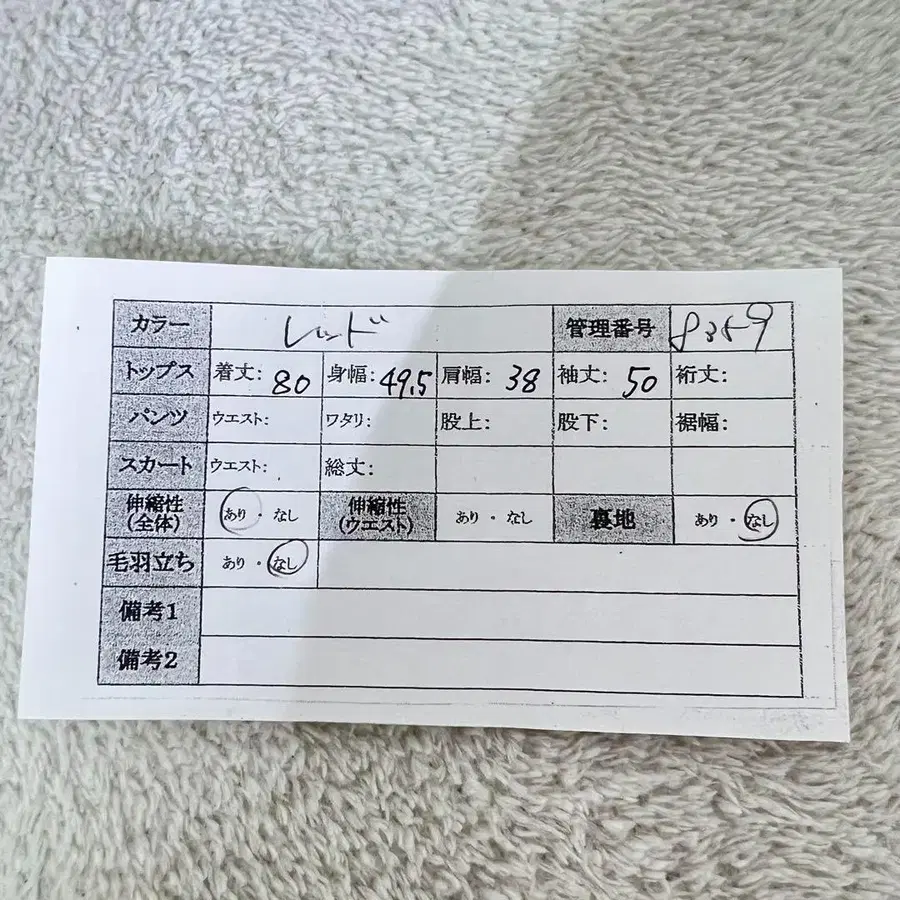 カラー レッド 管理番号 8359
トップス 着丈: 80 身幅: 49.5 肩幅: 38 袖丈: 50 裄丈:
パンツ ウエスト: ワタリ: 股上: 股下: 裾幅:
スカート ウエスト: 総丈:
伸縮性(全体) あり ・ なし 伸縮性(ウエスト) あり ・ なし 裏地 あり ・ なし
毛羽立ち あり ・ なし
備考1
備考2